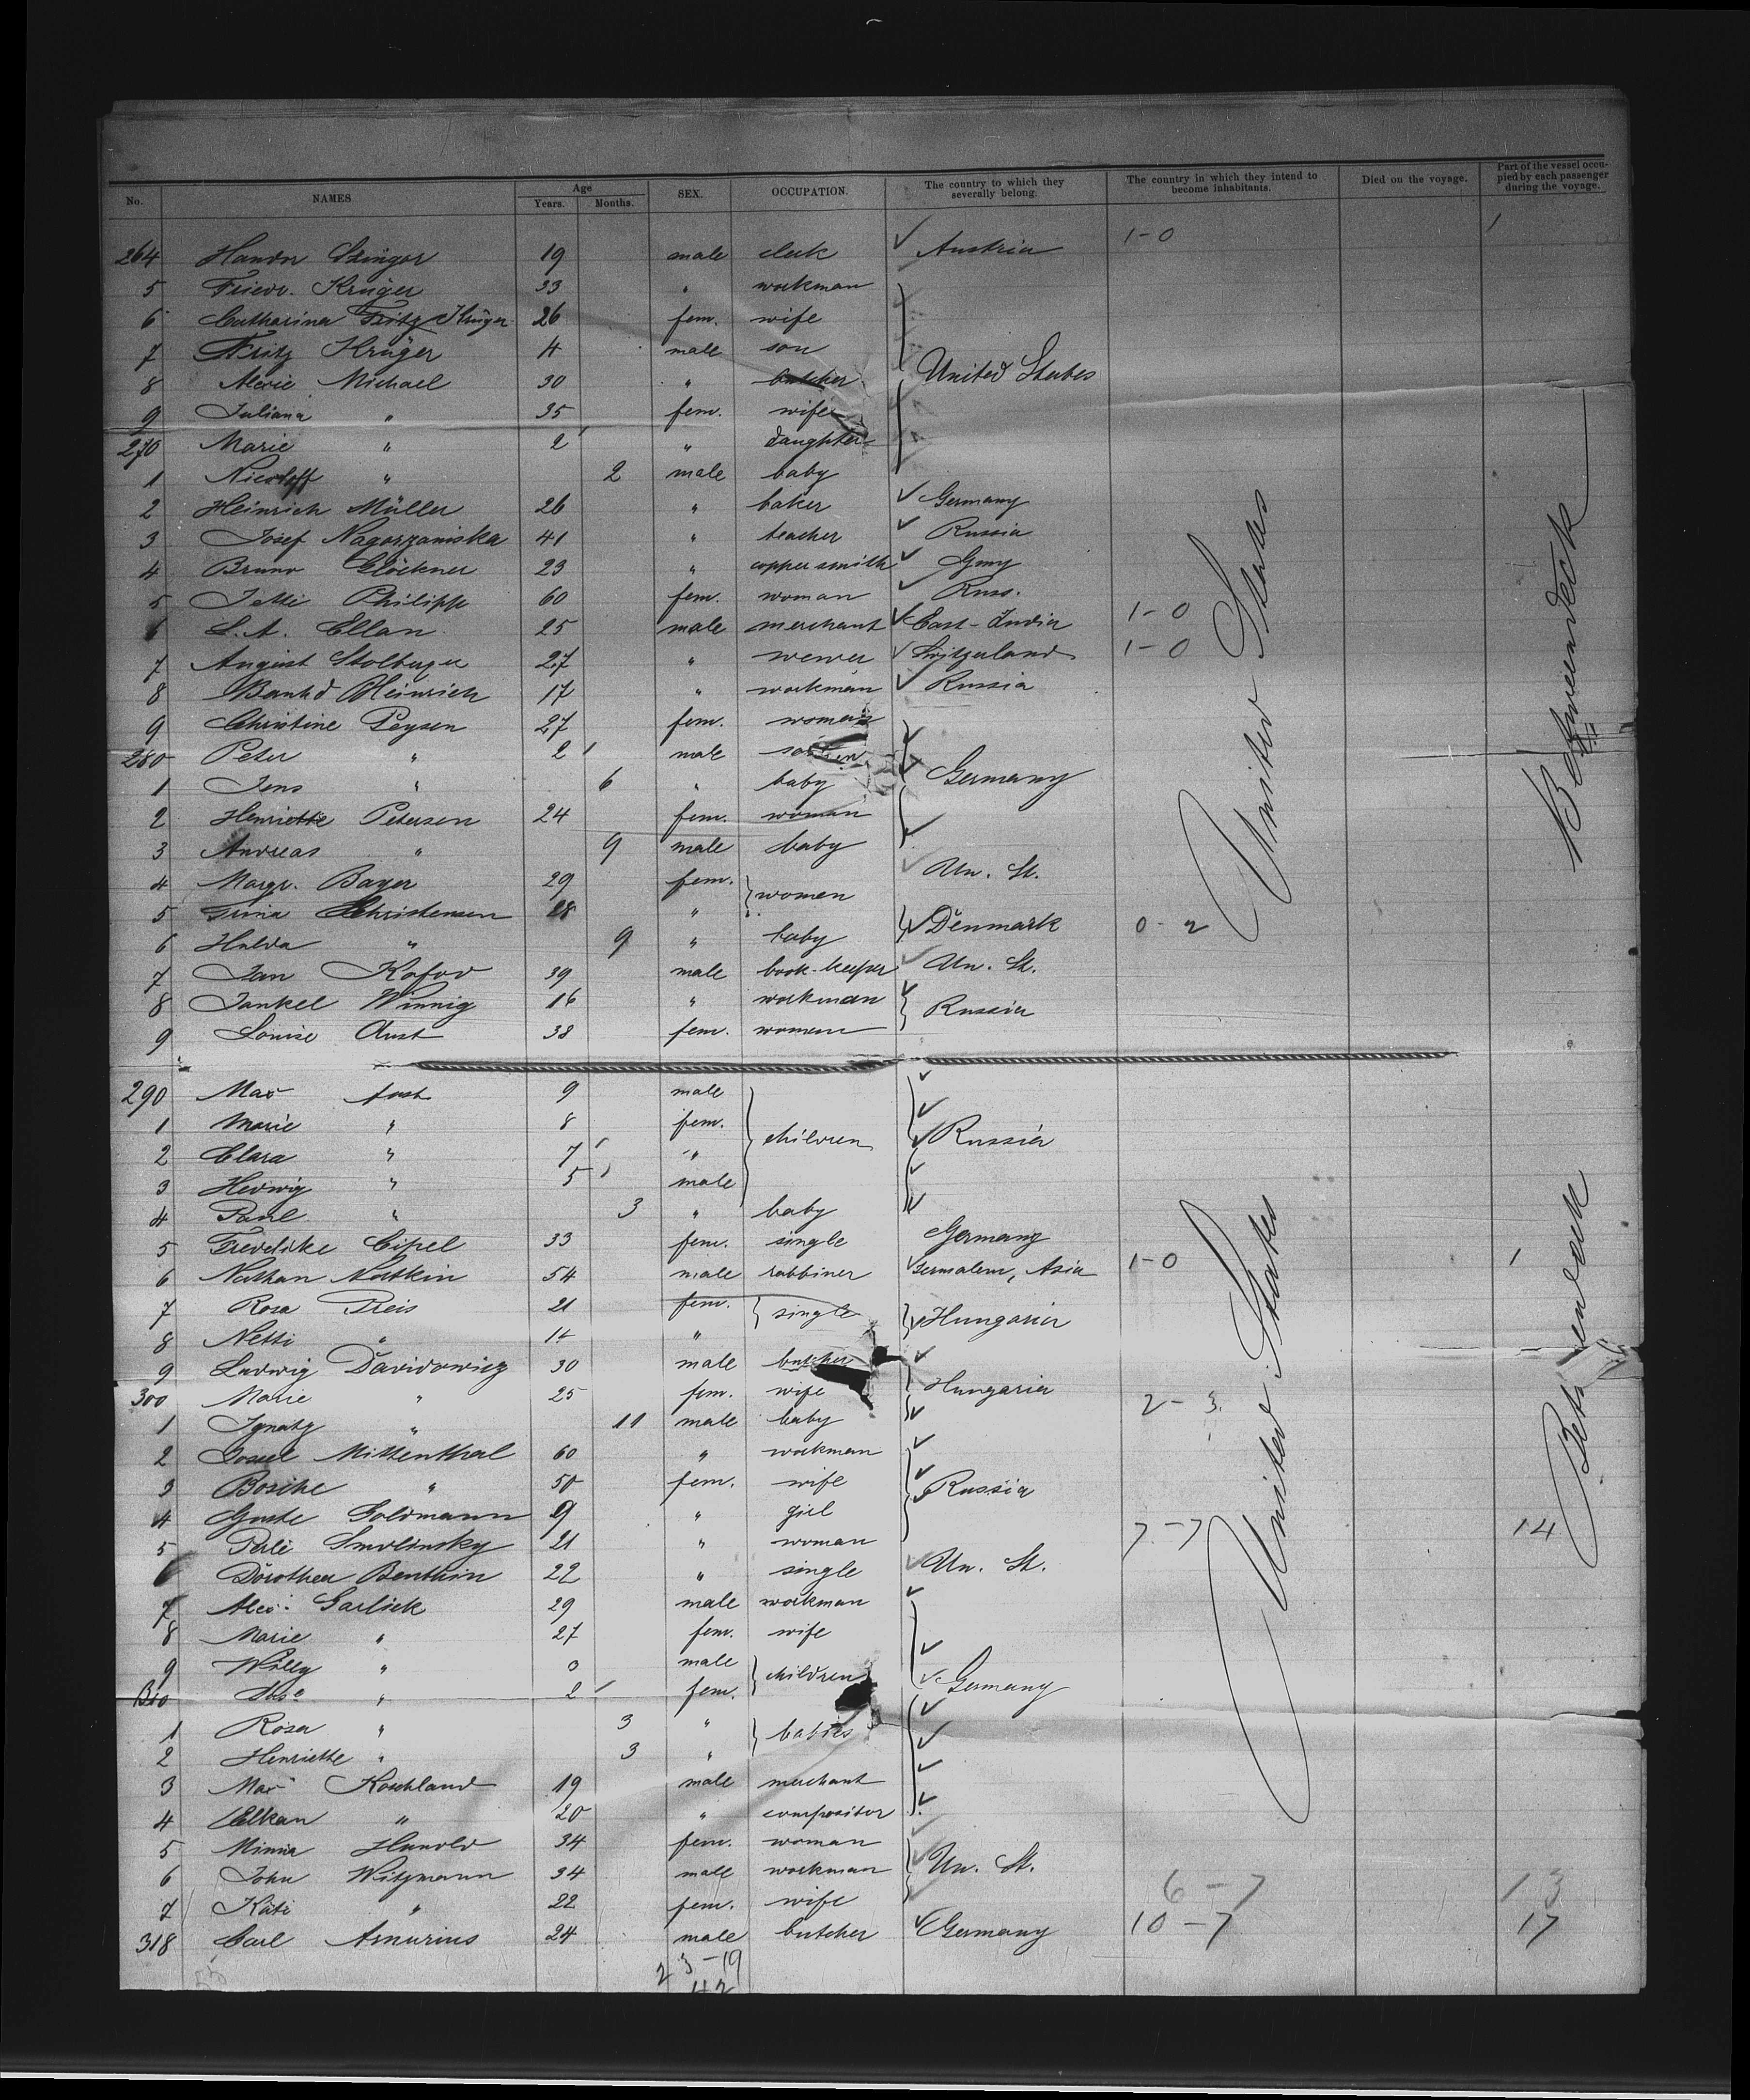 No. NAMES Age Years. Months. SEX. OCCUPATION. The country to which they severally belong. The country in which they intend to become inhabitants. Died on the voyage. Part of the vessel occupied by each passenger during the voyage.
264 19 male clerk Austria 1-0 1
5 Friedr. Krüger 33 " workman
6 Catharina Fritz Krüger 26 fem. wife
7 Fritz Krüger 4 male son
8 Michael 30 " butcher United States
9 Juliana " 35 fem. wife
270 Marie " 2 " daughter
1 " 2 male baby
2 Heinrich Müller 26 " baker Germany
3 Josef 41 " teacher Russia
4 Bruno Glöckner 23 " coppersmith Gmy
5 Jette Philipp 60 fem. woman Russ.
6 L.A. Ellan 25 male merchant East-India 1-0
7 August Stolberger 27 " Switzerland 1-0
8 Heinrich 17 " workman Russia
9 Christine Paysen 27 fem. woman
280 Peter " 2 male son
1 Jens " 6 " baby Germany
2 Henriette Petersen 24 fem. woman
3 Andreas " 9 male baby
4 Margr. Bayer 29 fem. women Un. St.
5 Christensen 28 " Denmark 0-2
6 Hulda " 9 " baby
7 Jan Kofod 39 male book-keeper Un. St.
8 Jankel Winnig 16 " workman Russia
9 Louise Aust 38 fem. woman
United States
Betweendeck
290 Max Aust 9 male
1 Marie " 8 fem. children Russia
2 Clara " 7 "
3 Hedwig " 5 male
4 Paul " 3 " baby
5 33 fem. single Germany
6 Nathan Natkin 54 male rabbiner Jerusalem, Asia 1-0 1
7 Rosa Preis 21 fem. single Hungaria
8 Netti " "
9 Ludwig Davidowicz 30 male butcher
300 Marie " 25 fem. wife Hungaria 2-3
1 Ignatz " 11 male baby
2 Mittenthal 60 " workman
3 " 50 fem. wife Russia
4 Goldmann 9 " girl
5 Perle Smolinsky 21 " woman 7-7 14
6 Dorothea Benthin 22 " single Un. St.
7 Alex. Garlick 29 male workman
8 Marie " 27 fem. wife
9 Willy " 3 male children Germany
310 " 2 fem.
1 Rosa " 3 " babies
2 Henriette " 3 "
3 Max Koschland 19 male merchant
4 Elkan " 20 " compositor
5 Minna Hunold 34 fem. woman
6 John Witzmann 34 male workman Un. St.
7 Käti " 22 fem. wife 6-7 13
318 Carl 24 male butcher Germany 10-7 17
United States
23-19
42